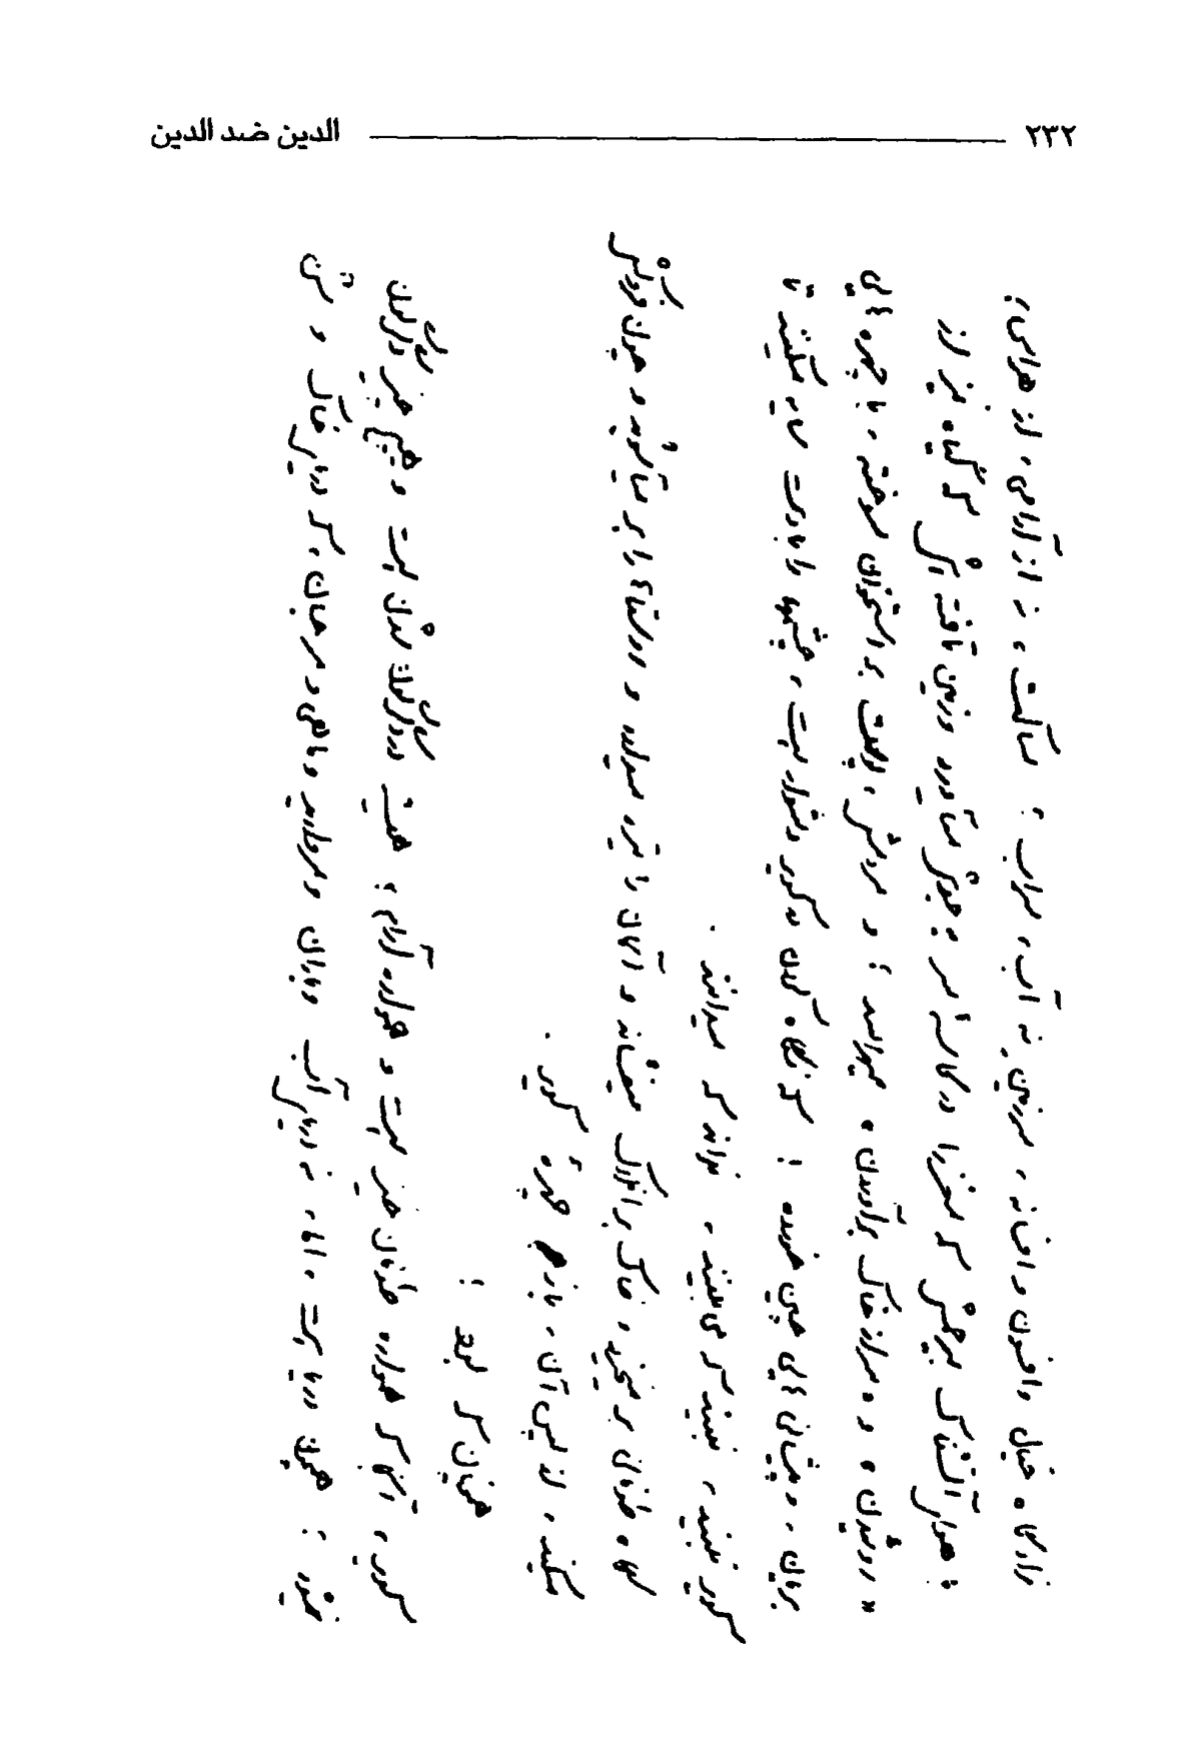 ۲۳۲ الدین ضد الدین
زادگاه خیال و افسون و افسانه، سرزمین نه آب، سراب؛ ساکت، نه از آرامی، از هراس؛
با هوای آتشناک بیرحمش که مغز را در کاسهٔ سر بجوش میآورد و زمین تافته اش که گیاه نیز از
«روئیدن» و «سر از خاک برآوردن» میهراسد؛ و مردمش، پوست بر استخوان سوخته، با چهره هایی
بریان، و پیشانی هایی چین خورده؛ که نگاه کردن در کویر دشوار است، چشمها را با دست سایه میکنند تا
کویر نبیند، نبیند که می بینند، نداند که میدانند.
گهگاه طوفانی بر میخیزد، خاک بر افلاک میفشاند و آسمان را تیره میدارد و روستاها را بر میآشوبد و چون فروکش
میکند، از پس آن، باز هم چهرهٔ کویر.
همچنان که بود!
کویر، آنجا که همواره طوفان خیز است و همواره آرام؛ همیشه در دگرگون شدن است و هیچ چیز دگرگون
نمیشود؛ همچون دریاست، اما، نه دریای آب و باران و مروارید و ماهی و مرجان، که دریای خاک و شن